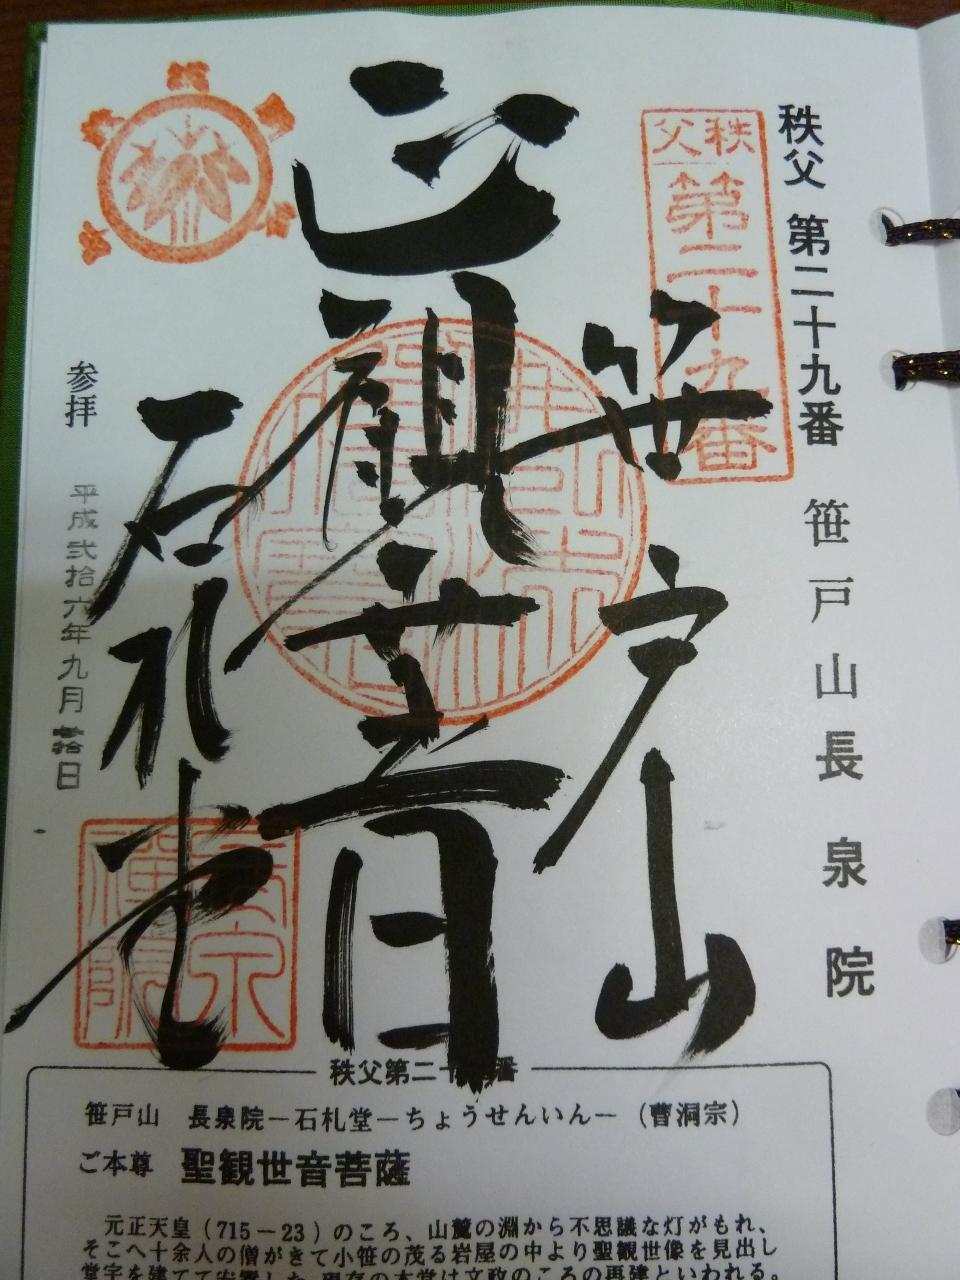 秩父 第二十九番 笹戸山長泉院
秩父
第二十九番
笹戸山
正観世音
石札堂
参拝 平成弐拾六年九月廿拾日
秩父第二十九番
笹戸山 長泉院－石札堂－ちょうせんいん－（曹洞宗）
ご本尊 聖観世音菩薩
元正天皇（715－23）のころ、山麓の淵から不思議な灯がもれ、
そこへ十余人の僧がきて小笹の茂る岩屋の中より聖観世像を見出し
堂宇を建てて安置した。現存の本堂は文政のころの再建といわれる。